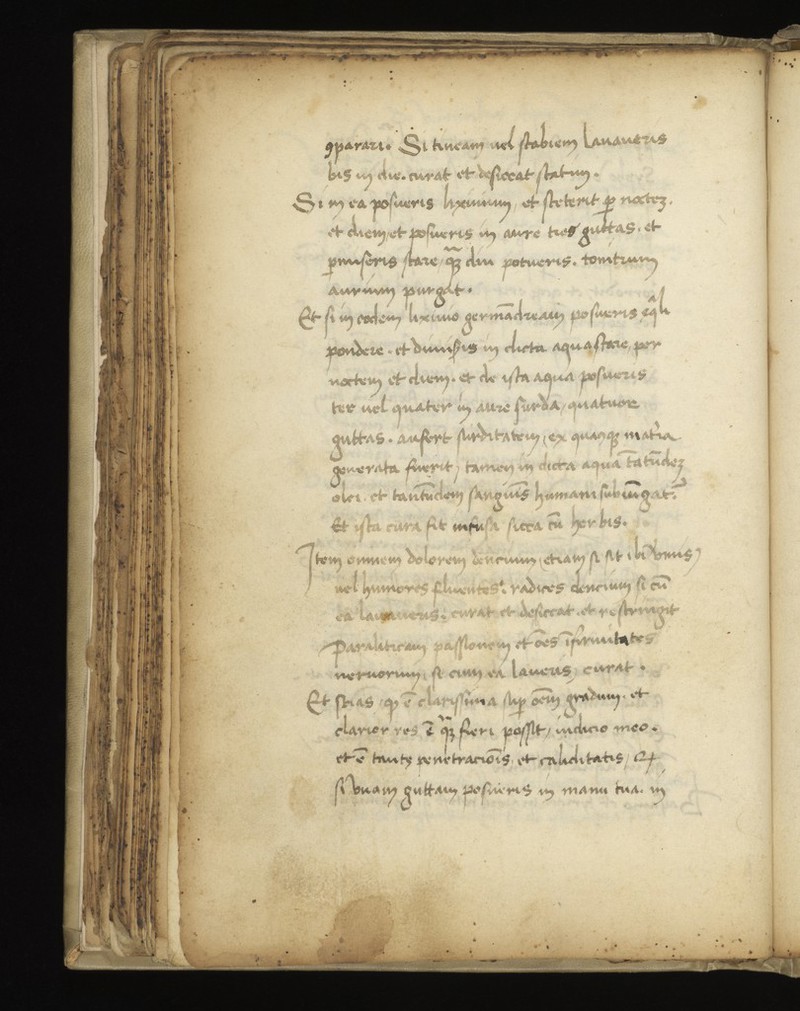 ꝯparari. Si tineam uel scabiem lauaueris
bis in die. curat et desiccat statim.
Si in ea posueris lixiuium, et steterit ꝑ noctez.
et diem, et posueris in aure tres guttas. et
ꝑmiseris stare, qua̅ꝫ diu potueris. tonitruum
aurium purgat.
Et si in eodem lixiuio germa̅dream posueris eq̅li
pondere. et dimiseris in dicta aqua stare per
noctem et diem. et de ista aqua posueris
ter uel quater in aure surda, quatuor
guttas. aufert surditatem, ex quacunqꝫ mat̅ia
generata fuerit, tamen in dicta aqua ta̅tu̅dez
olei. et tantu̅dem sangui̅s humani subiu̅gat̅.
Et ista cura fit infusa sicca cu̅ herbis.
Item omnem dolorem dencium, etiam si sit ibi uermis,
uel humores fluentes. radices dencium si cu̅
ea lauaueris. curat et desiccat. et restringit
Paraliticam passionem et o̅es i̅firmitates
neruorum, si cum ea laueris, curat.
Et scias, ꝙ e̅ clarissima suꝑ o̅em gradum. et
clarior res e̅ qua̅ꝫ fieri possit, iudicio meo.
et e̅ tante penetracio̅is, et caliditatis, ꝙ
si unam guttam posueris in manu tua. in